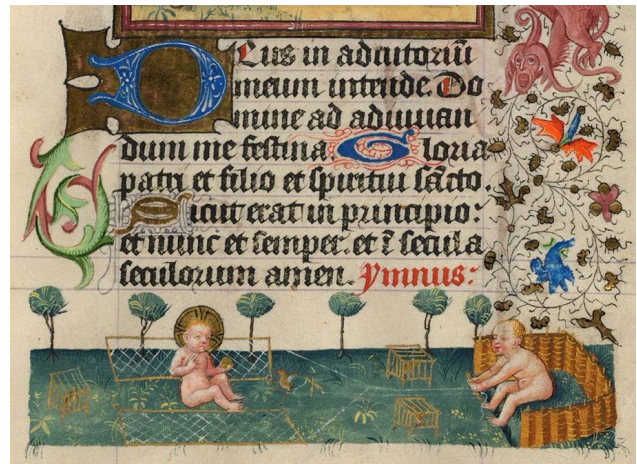 Deus in adiutoriū
meum intende. Do
mine ad adiuuan
dum me festina. Gloria
patri et filio et spiritui sācto.
Sicut erat in principio:
et nunc et semper. et ī secula
seculorum amen. ymnus: